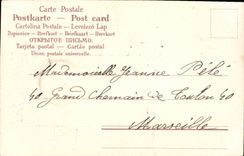 Carte Postale
Postkarte — Post card
Cartolina Postale — Levelező Lap
Dopisnice — Brefkort — Briefkaart — Brevkort
ОТКРЫТОЕ ПИСЬМО.
Tarjeta postal — Cartão postal
Union postale universelle.
Mademoiselle Jeanne Pélé
40 Grand Chemain de Toulon 40
Marseille